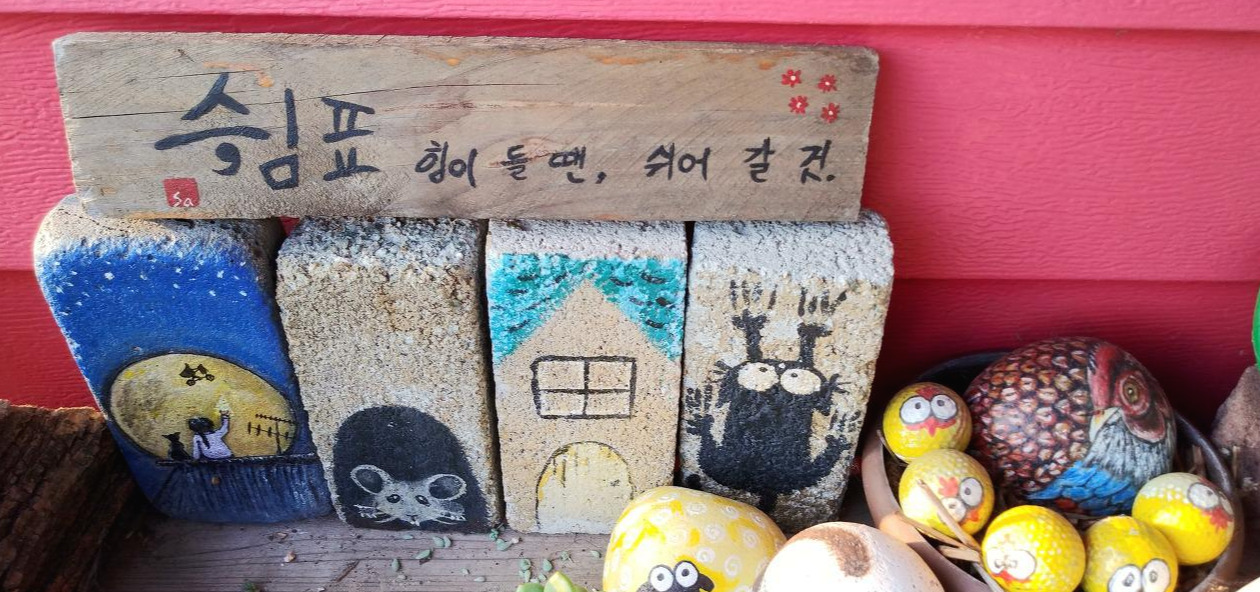 쉼표 힘이 들 땐, 쉬어 갈 것.
Sa